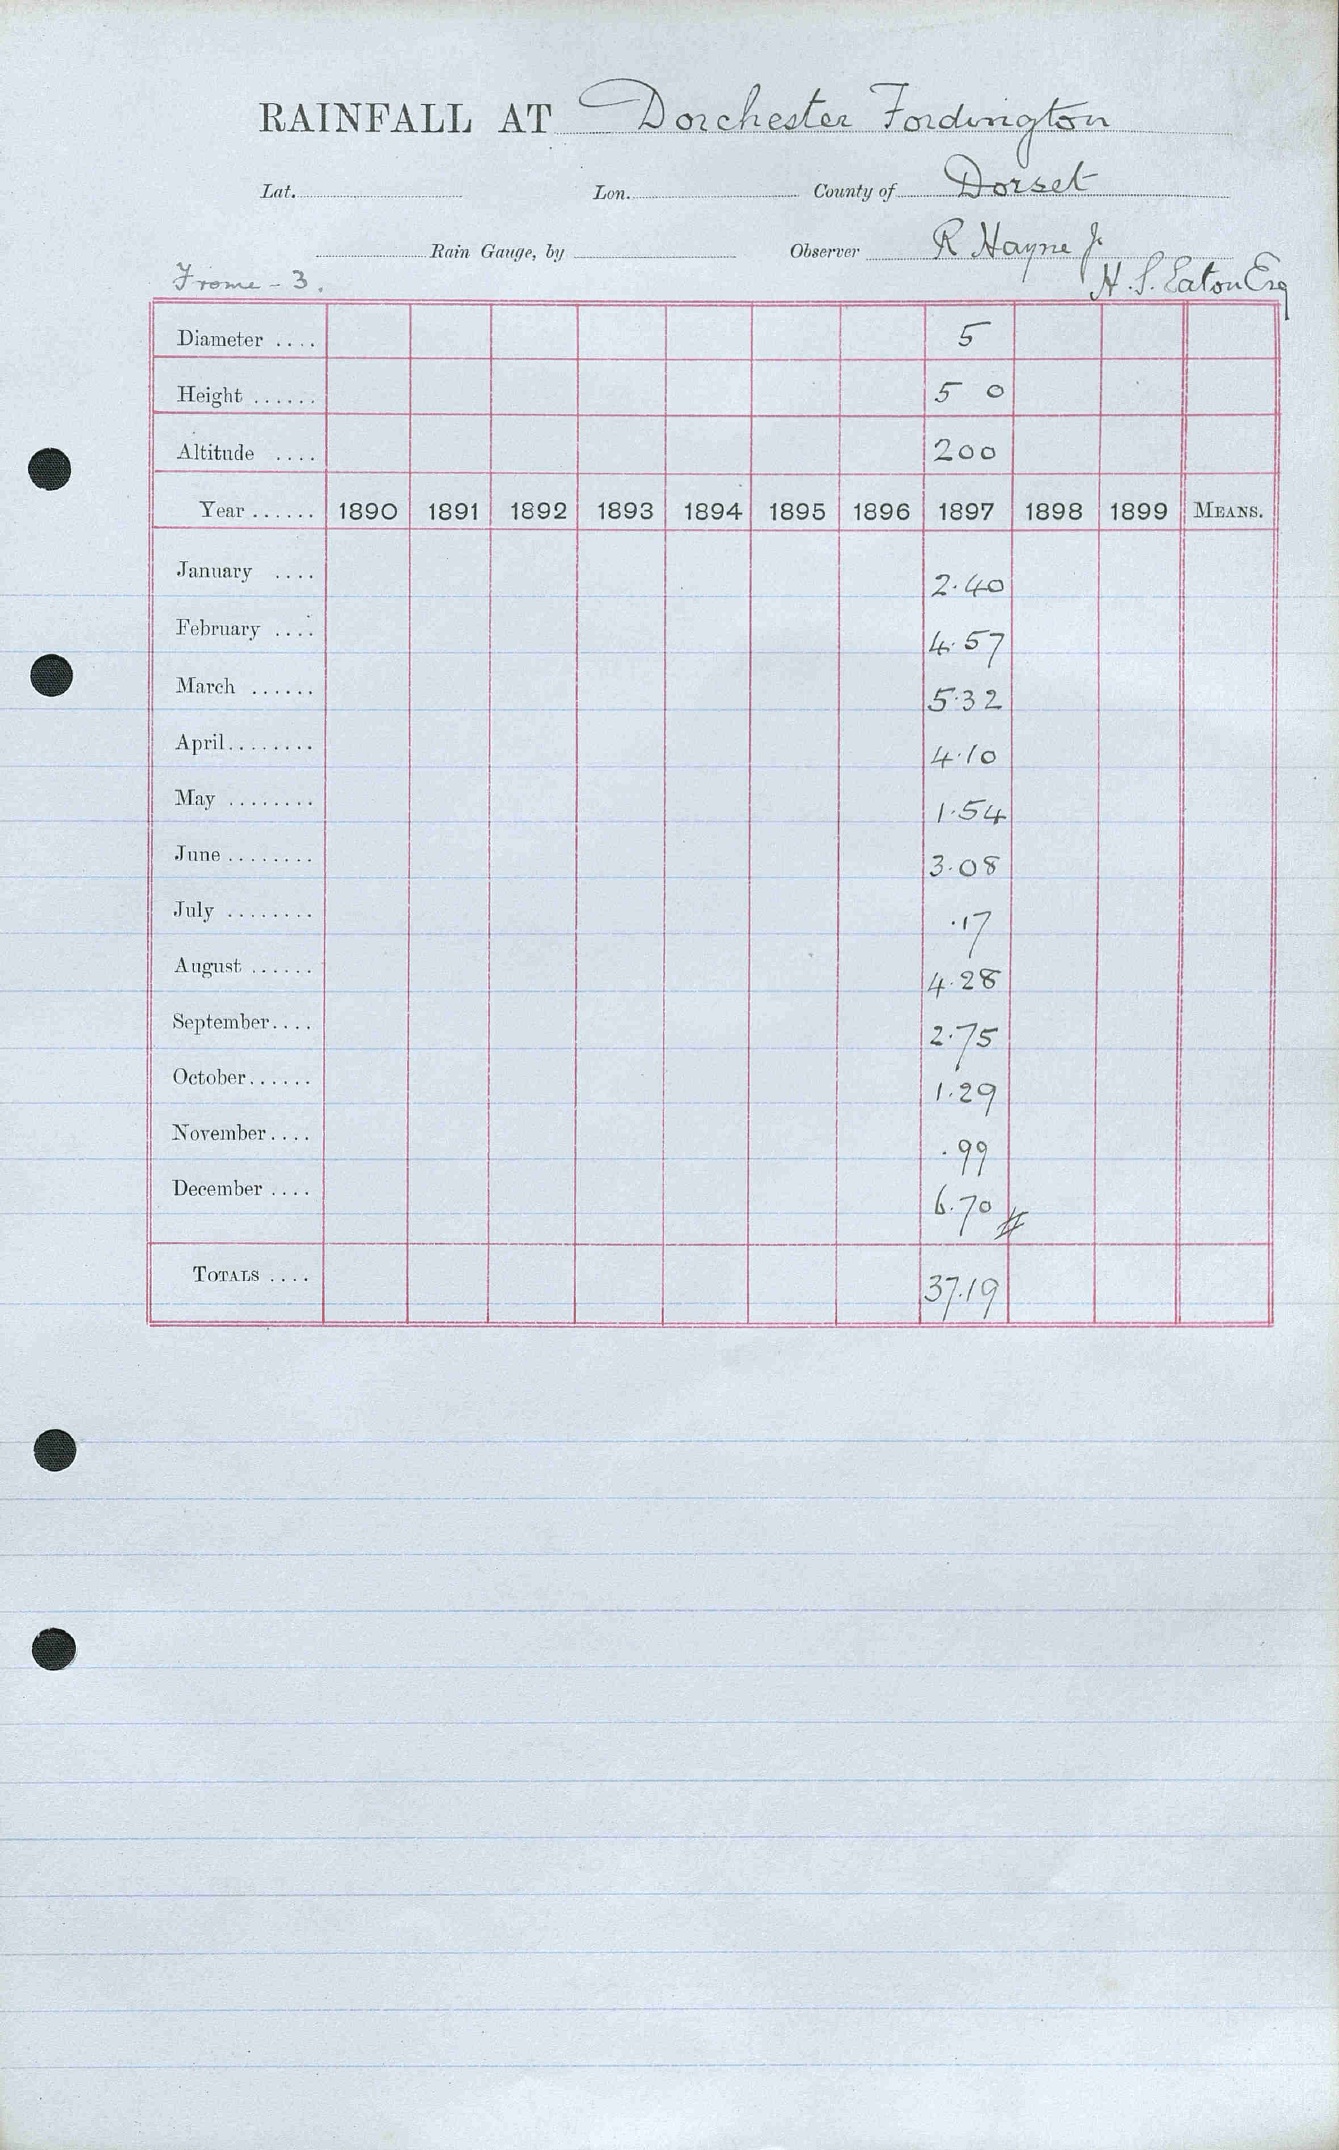 RAINFALL AT Dorchester Fordington
Lat. Lon. County of Dorset
Rain Gauge, by Observer R Hayne J.
Frome - 3. H. S. Eaton Esq
Diameter .... 5
Height ...... 5 0
Altitude .... 200
Year ...... 1890 1891 1892 1893 1894 1895 1896 1897 1898 1899 MEANS.
January .... 2.40
February .... 4.57
March ...... 5.32
April........ 4.10
May ........ 1.54
June ........ 3.08
July ........ .17
August ...... 4.28
September.... 2.75
October...... 1.29
November.... .99
December .... 6.70 #
TOTALS .... 37.19